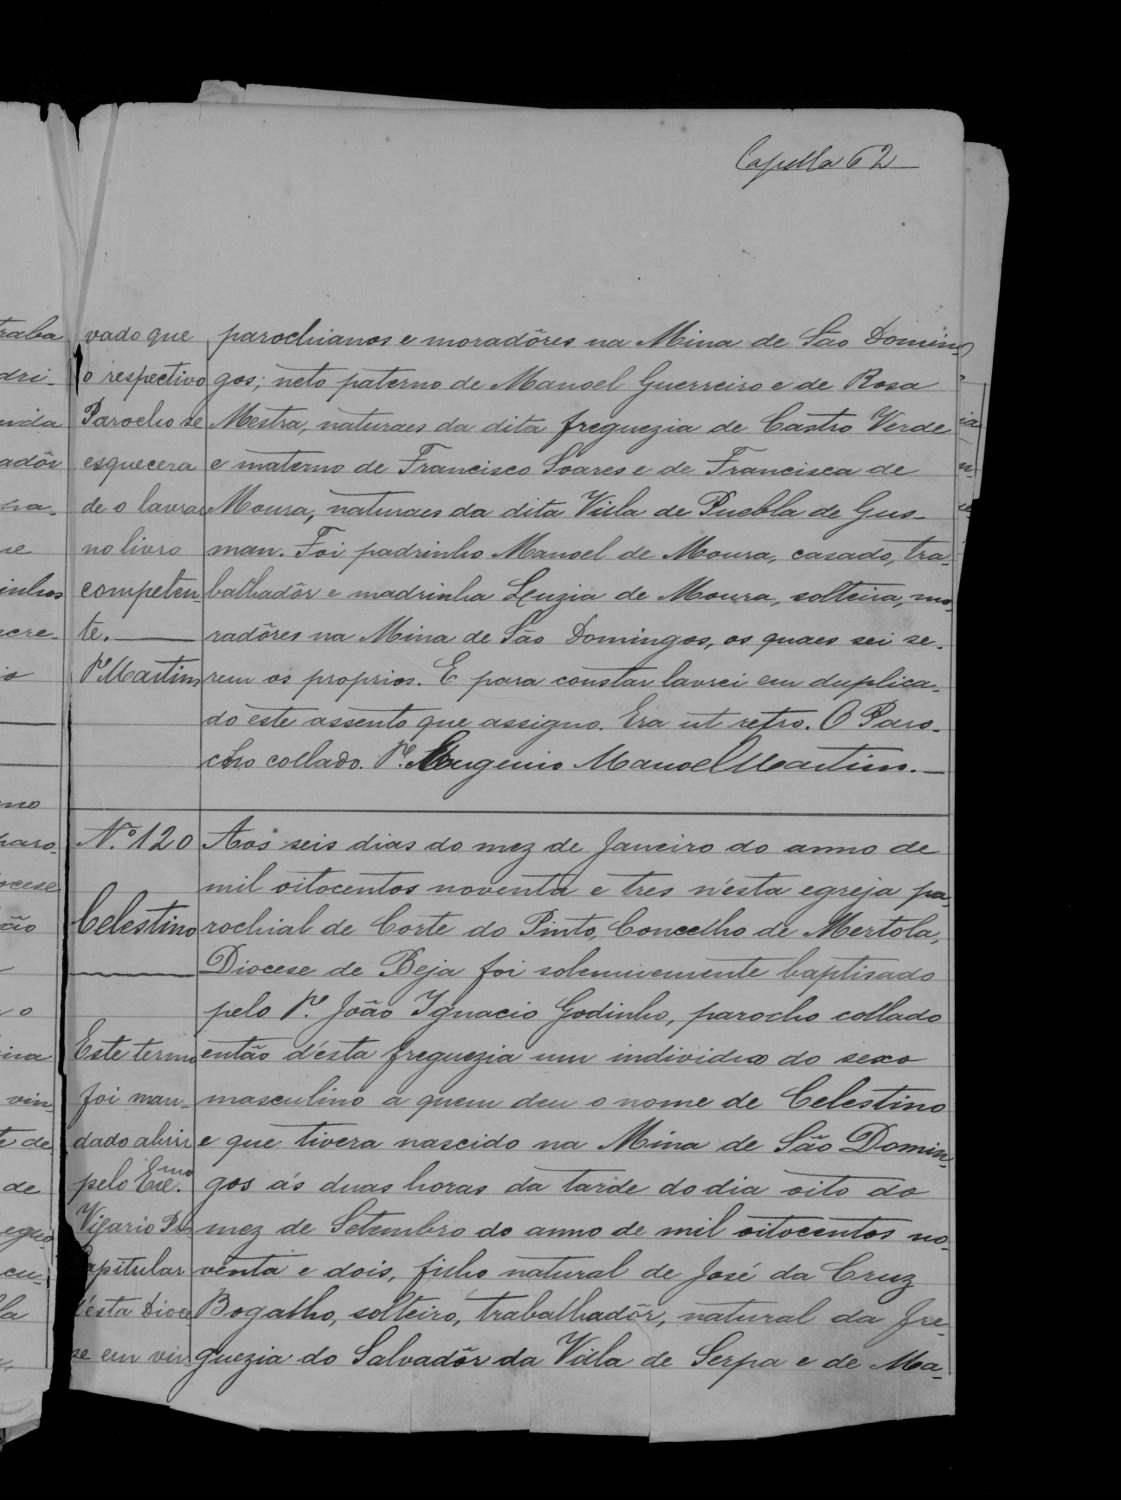 Capella 62
vado que
o respectivo
Parocho se
esquecera
de o lavrar
no livro
competen-
te.
Pe Martins
parochianos e moradôres na Mina de São Domin-
gos; neto paterno de Manoel Guerreiro e de Rosa
Mestra, naturaes da dita freguezia de Castro Verde
e materno de Francisco Soares e de Francisca de
Moura, naturaes da dita Villa de Puebla de Gus-
man. Foi padrinho Manoel de Moura, casado, tra-
balhadôr e madrinha Luzia de Moura, solteira, mo-
radôres na Mina de São Domingos, os quaes sei se-
rem os proprios. E para constar lavrei em duplica-
do este assento que assigno. Era ut retro. O Paro-
cho collado. Pe. Eugenio Manoel Martins.
N.º 120
Celestino
Este termo
foi man-
dado abrir
pelo Exmo.
Vigario
Capitular
d'esta Dioce
se em vir
Aos seis dias do mez de Janeiro do anno de
mil oitocentos noventa e tres n'esta egreja pa-
rochial de Corte do Pinto, Concelho de Mertola,
Diocese de Beja foi solemnemente baptisado
pelo Pe. João Ignacio Godinho, parocho collado
então d'esta freguezia um individuo do sexo
masculino a quem deu o nome de Celestino
e que tivera nascido na Mina de São Domin-
gos ás duas horas da tarde do dia oito do
mez de Setembro do anno de mil oitocentos no-
venta e dois, filho natural de José da Cruz
Bogalho, solteiro, trabalhadôr, natural da fre-
guezia do Salvadôr da Villa de Serpa e de Ma-